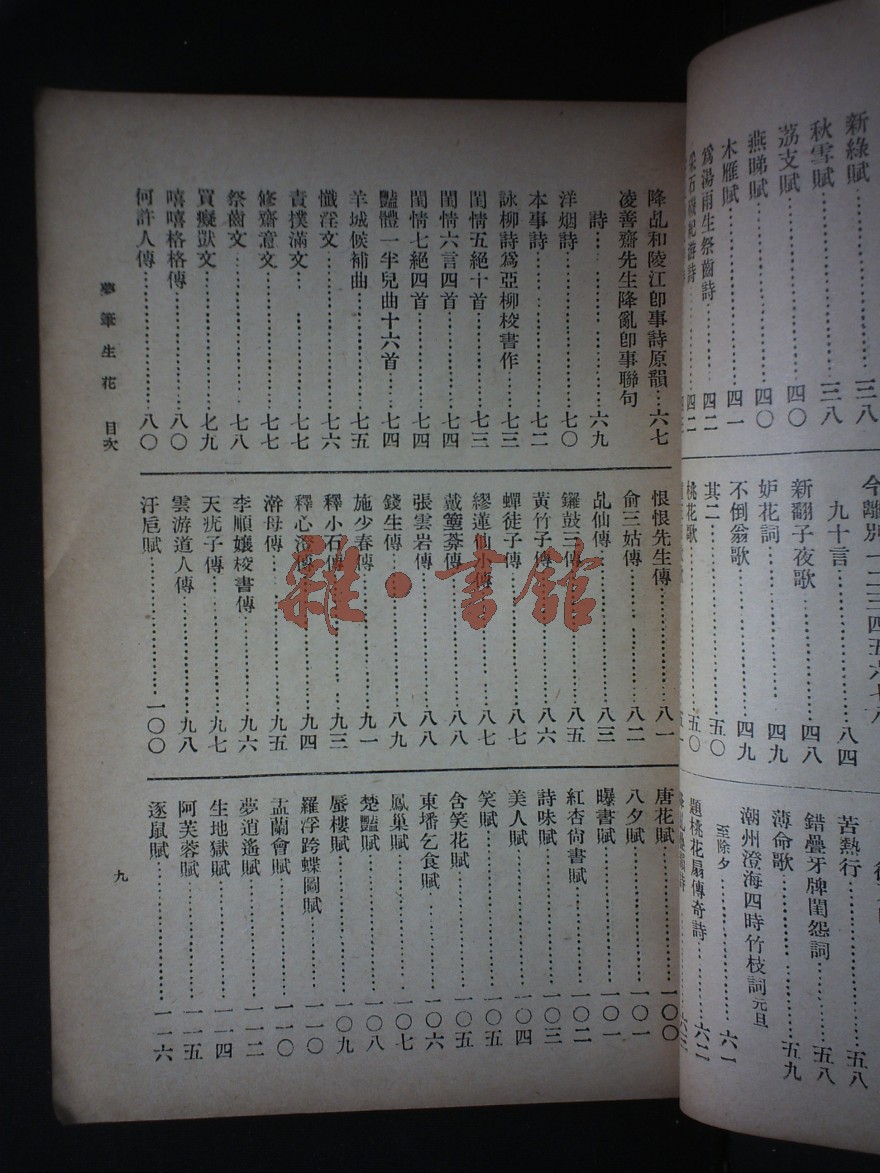 新綠賦……三八
秋雪賦……三八
荔支賦……四〇
燕睇賦……四〇
木雁賦……四一
爲湯雨生祭齒詩……四二
采石磯紀游詩……四二
今離別一二三四五六七八
九十言……八四
新翻子夜歌……四八
妒花詞……四九
不倒翁歌……四九
其二……五〇
桃花歌……五〇
苦熱行……五八
錯疊牙牌閨怨詞……五八
薄命歌……五九
潮州澄海四時竹枝詞元旦
至除夕……六一
題桃花扇傳奇詩……六二
降乩和陵江卽事詩原韻…六七
凌善齋先生降亂卽事聯句
詩……六九
洋烟詩……七〇
本事詩……七二
詠柳詩爲亞柳校書作……七三
閨情五絕十首……七三
閨情六言四首……七四
閨情七絕四首……七四
豔體一半兒曲十六首…七四
羊城候補曲……七五
懺淫文……七六
責撲滿文……七七
修齋意文……七七
祭齒文……七八
買癡獃文……七九
嘻嘻格格傳……八〇
何許人傳……八〇
恨恨先生傳……八一
俞三姑傳……八二
乩仙傳……八三
鑼鼓三傳……八五
黃竹子傳……八六
蟬徒子傳……八七
繆蓮仙小傳……八七
戴蘭蓀傳……八八
張雲岩傳……八八
錢生傳……八九
施少春傳……九一
釋小石傳……九三
釋心澄傳……九四
澣母傳……九五
李順孃校書傳……九六
天疣子傳……九七
雲游道人傳……九八
汙巵賦……一〇〇
唐花賦……一〇〇
八夕賦……一〇一
曝書賦……一〇一
紅杏尙書賦……一〇二
詩味賦……一〇三
美人賦……一〇四
笑賦……一〇五
含笑花賦……一〇五
東墦乞食賦……一〇六
鳳巢賦……一〇七
楚豔賦……一〇八
蜃樓賦……一〇九
羅浮跨蝶圖賦……一一〇
盂蘭會賦……一一〇
夢逍遙賦……一一二
生地獄賦……一一四
阿芙蓉賦……一一五
逐鼠賦……一一六
夢筆生花 目次
九
雜·書館